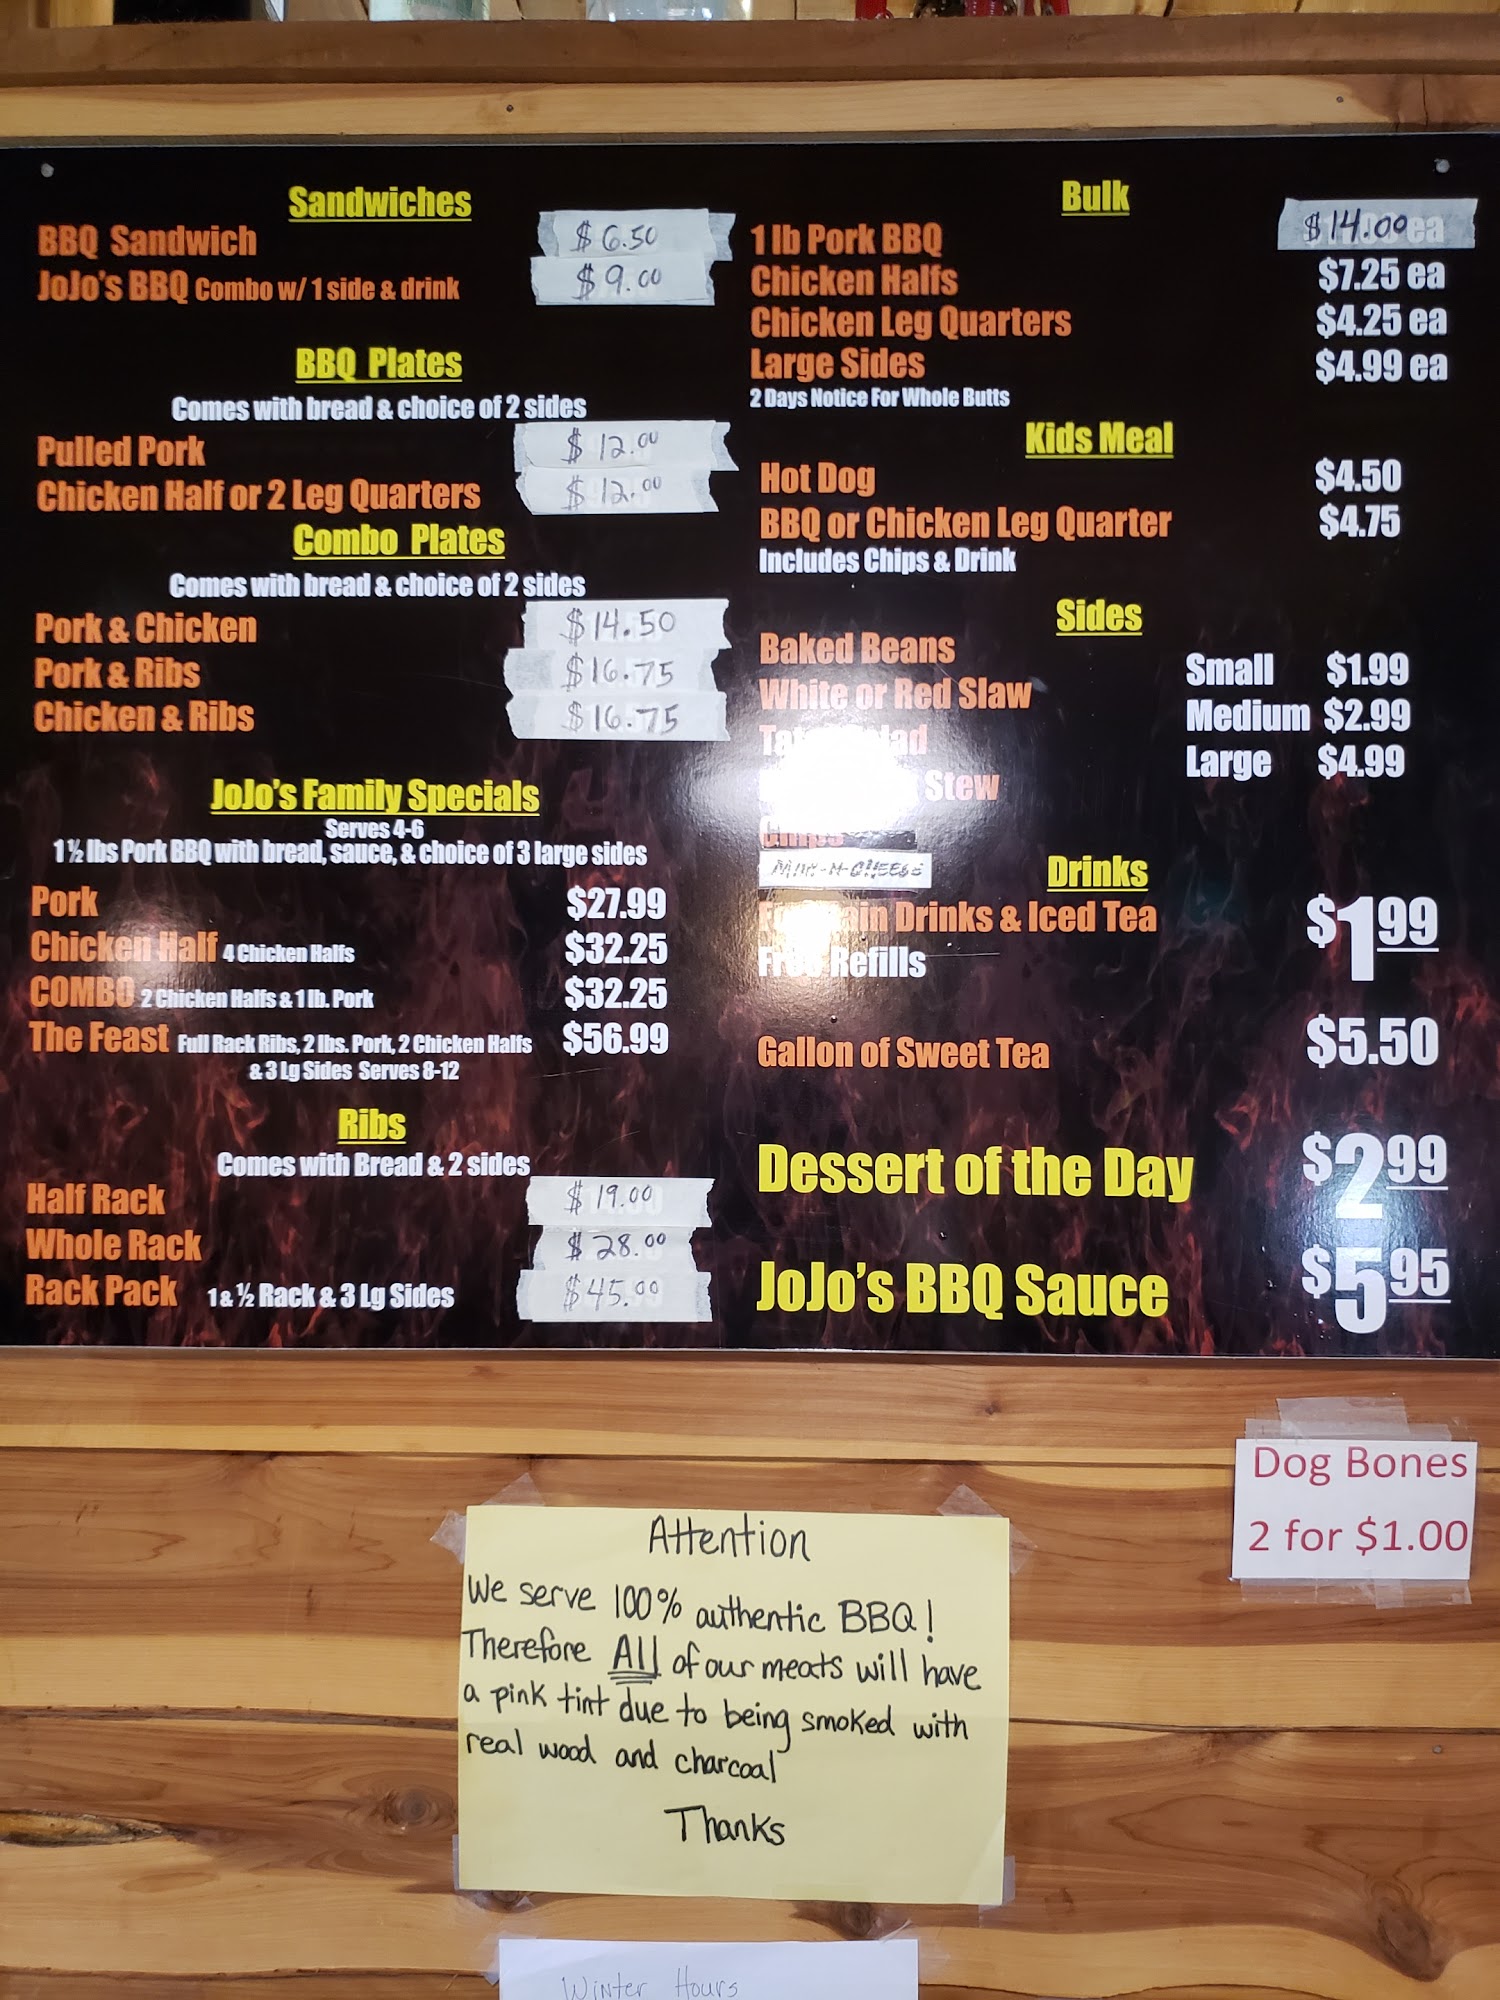 Sandwiches
BBQ Sandwich $6.50
JoJo's BBQ Combo w/ 1 side & drink $9.00
BBQ Plates
Comes with bread & choice of 2 sides
Pulled Pork $12.00
Chicken Half or 2 Leg Quarters $12.00
Combo Plates
Comes with bread & choice of 2 sides
Pork & Chicken $14.50
Pork & Ribs $16.75
Chicken & Ribs $16.75
JoJo's Family Specials
Serves 4-6
1 ½ lbs Pork BBQ with bread, sauce, & choice of 3 large sides
Pork $27.99
Chicken Half 4 Chicken Halfs $32.25
COMBO 2 Chicken Halfs & 1 lb. Pork $32.25
The Feast Full Rack Ribs, 2 lbs. Pork, 2 Chicken Halfs $56.99
& 3 Lg Sides Serves 8-12
Ribs
Comes with Bread & 2 sides
Half Rack $19.00
Whole Rack $28.00
Rack Pack 1 & ½ Rack & 3 Lg Sides $45.00
Bulk
1 lb Pork BBQ $14.00 ea
Chicken Halfs $7.25 ea
Chicken Leg Quarters $4.25 ea
Large Sides $4.99 ea
2 Days Notice For Whole Butts
Kids Meal
Hot Dog $4.50
BBQ or Chicken Leg Quarter $4.75
Includes Chips & Drink
Sides
Baked Beans
White or Red Slaw
Small $1.99
Medium $2.99
Large $4.99
Stew
Chips
MAC-N-CHEESE
Drinks
Fountain Drinks & Iced Tea $1.99
Free Refills
Gallon of Sweet Tea $5.50
Dessert of the Day $2.99
JoJo's BBQ Sauce $5.95
Dog Bones
2 for $1.00
Attention
We serve 100% authentic BBQ!
Therefore All of our meats will have
a pink tint due to being smoked with
real wood and charcoal
Thanks
Winter Hours